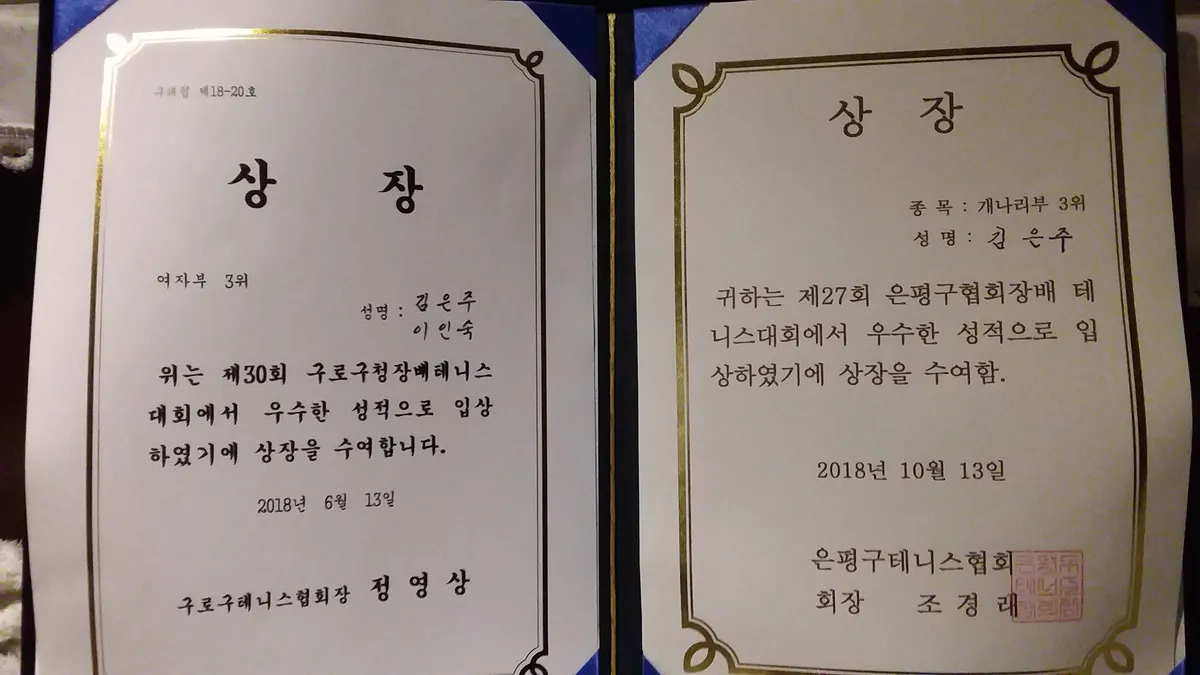 구테협 제18-20호
상 장
여자부 3위
성명 : 김은주
이인숙
위는 제30회 구로구청장배테니스
대회에서 우수한 성적으로 입상
하였기에 상장을 수여합니다.
2018년 6월 13일
구로구테니스협회장 정영상
상 장
종 목 : 개나리부 3위
성 명 : 김 은 주
귀하는 제27회 은평구협회장배 테
니스대회에서 우수한 성적으로 입
상하였기에 상장을 수여함.
2018년 10월 13일
은평구테니스협회
회장 조 경 래